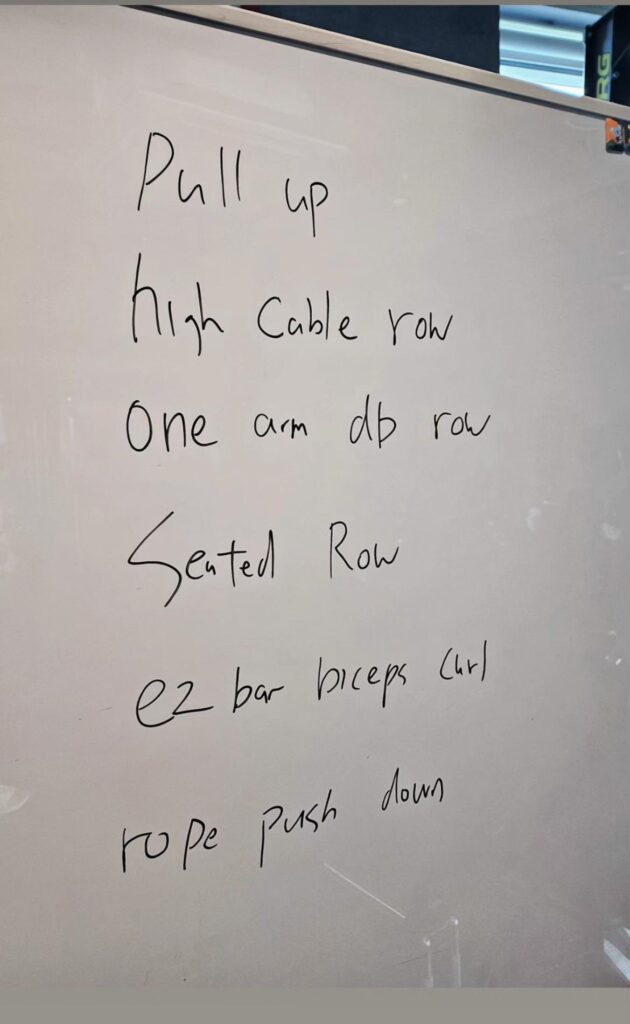 RG
Pull up
high Cable row
One arm db row
Seated Row
ez bar biceps Curl
rope push down